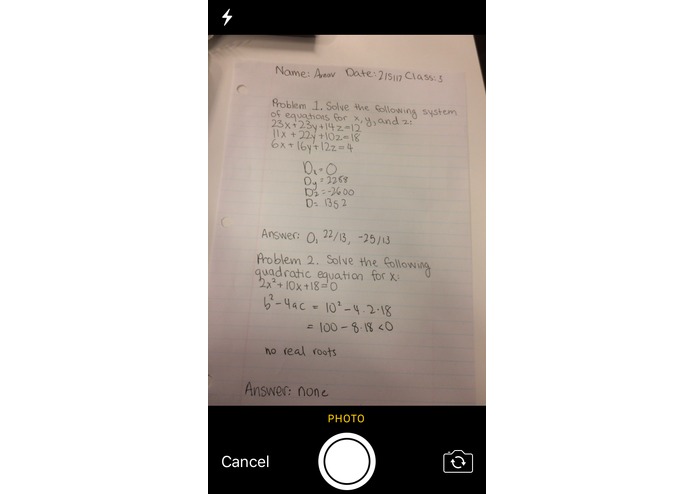 Name: Arnav Date: 2/5/17 Class: 3
Problem 1. Solve the following system
of equations for x, y, and z:
23x+23y+14z=12
11x+22y+10z=18
6x+16y+12z=4
Dx=0
Dy=2288
Dz=-2600
D=1352
Answer: 0, 22/13, -25/13
Problem 2. Solve the following
quadratic equation for x:
2x²+10x+18=0
b²-4ac = 10²-4.2.18
= 100-8.18<0
no real roots
Answer: none
PHOTO
Cancel